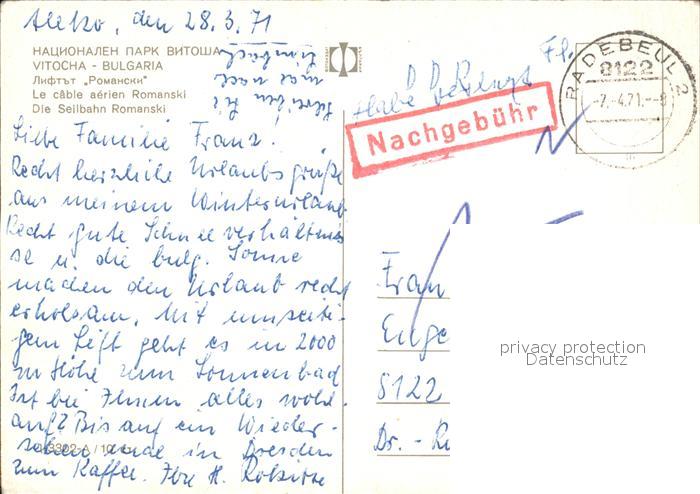 Aleko, den 28.3.71
НАЦИОНАЛЕН ПАРК ВИТОША
VITOCHA - BULGARIA
Лифтът „Романски“
Le câble aérien Romanski
Die Seilbahn Romanski
Schreiben Sie
mal nach
Liebe Familie Franz!
Recht herzliche Urlaubsgrüße
aus meinem Winterurlaub
Recht gute Schneeverhältnis
se u. die bulg. Sonne
machen den Urlaub recht
erholsam. Mit umseiti-
gem Lift geht es in 2000
m Höhe zum Sonnenbad
Ist bei Ihnen alles wohl
auf? Bis auf ein Wieder-
sehen in Dresden
zum Kaffee. Ihre H.
Habe
Nachgebühr
RADEBEUL 2
8122
-7.-4.71.--8
Fran
Enge
8122
Dr. - R
privacy protection
Datenschutz